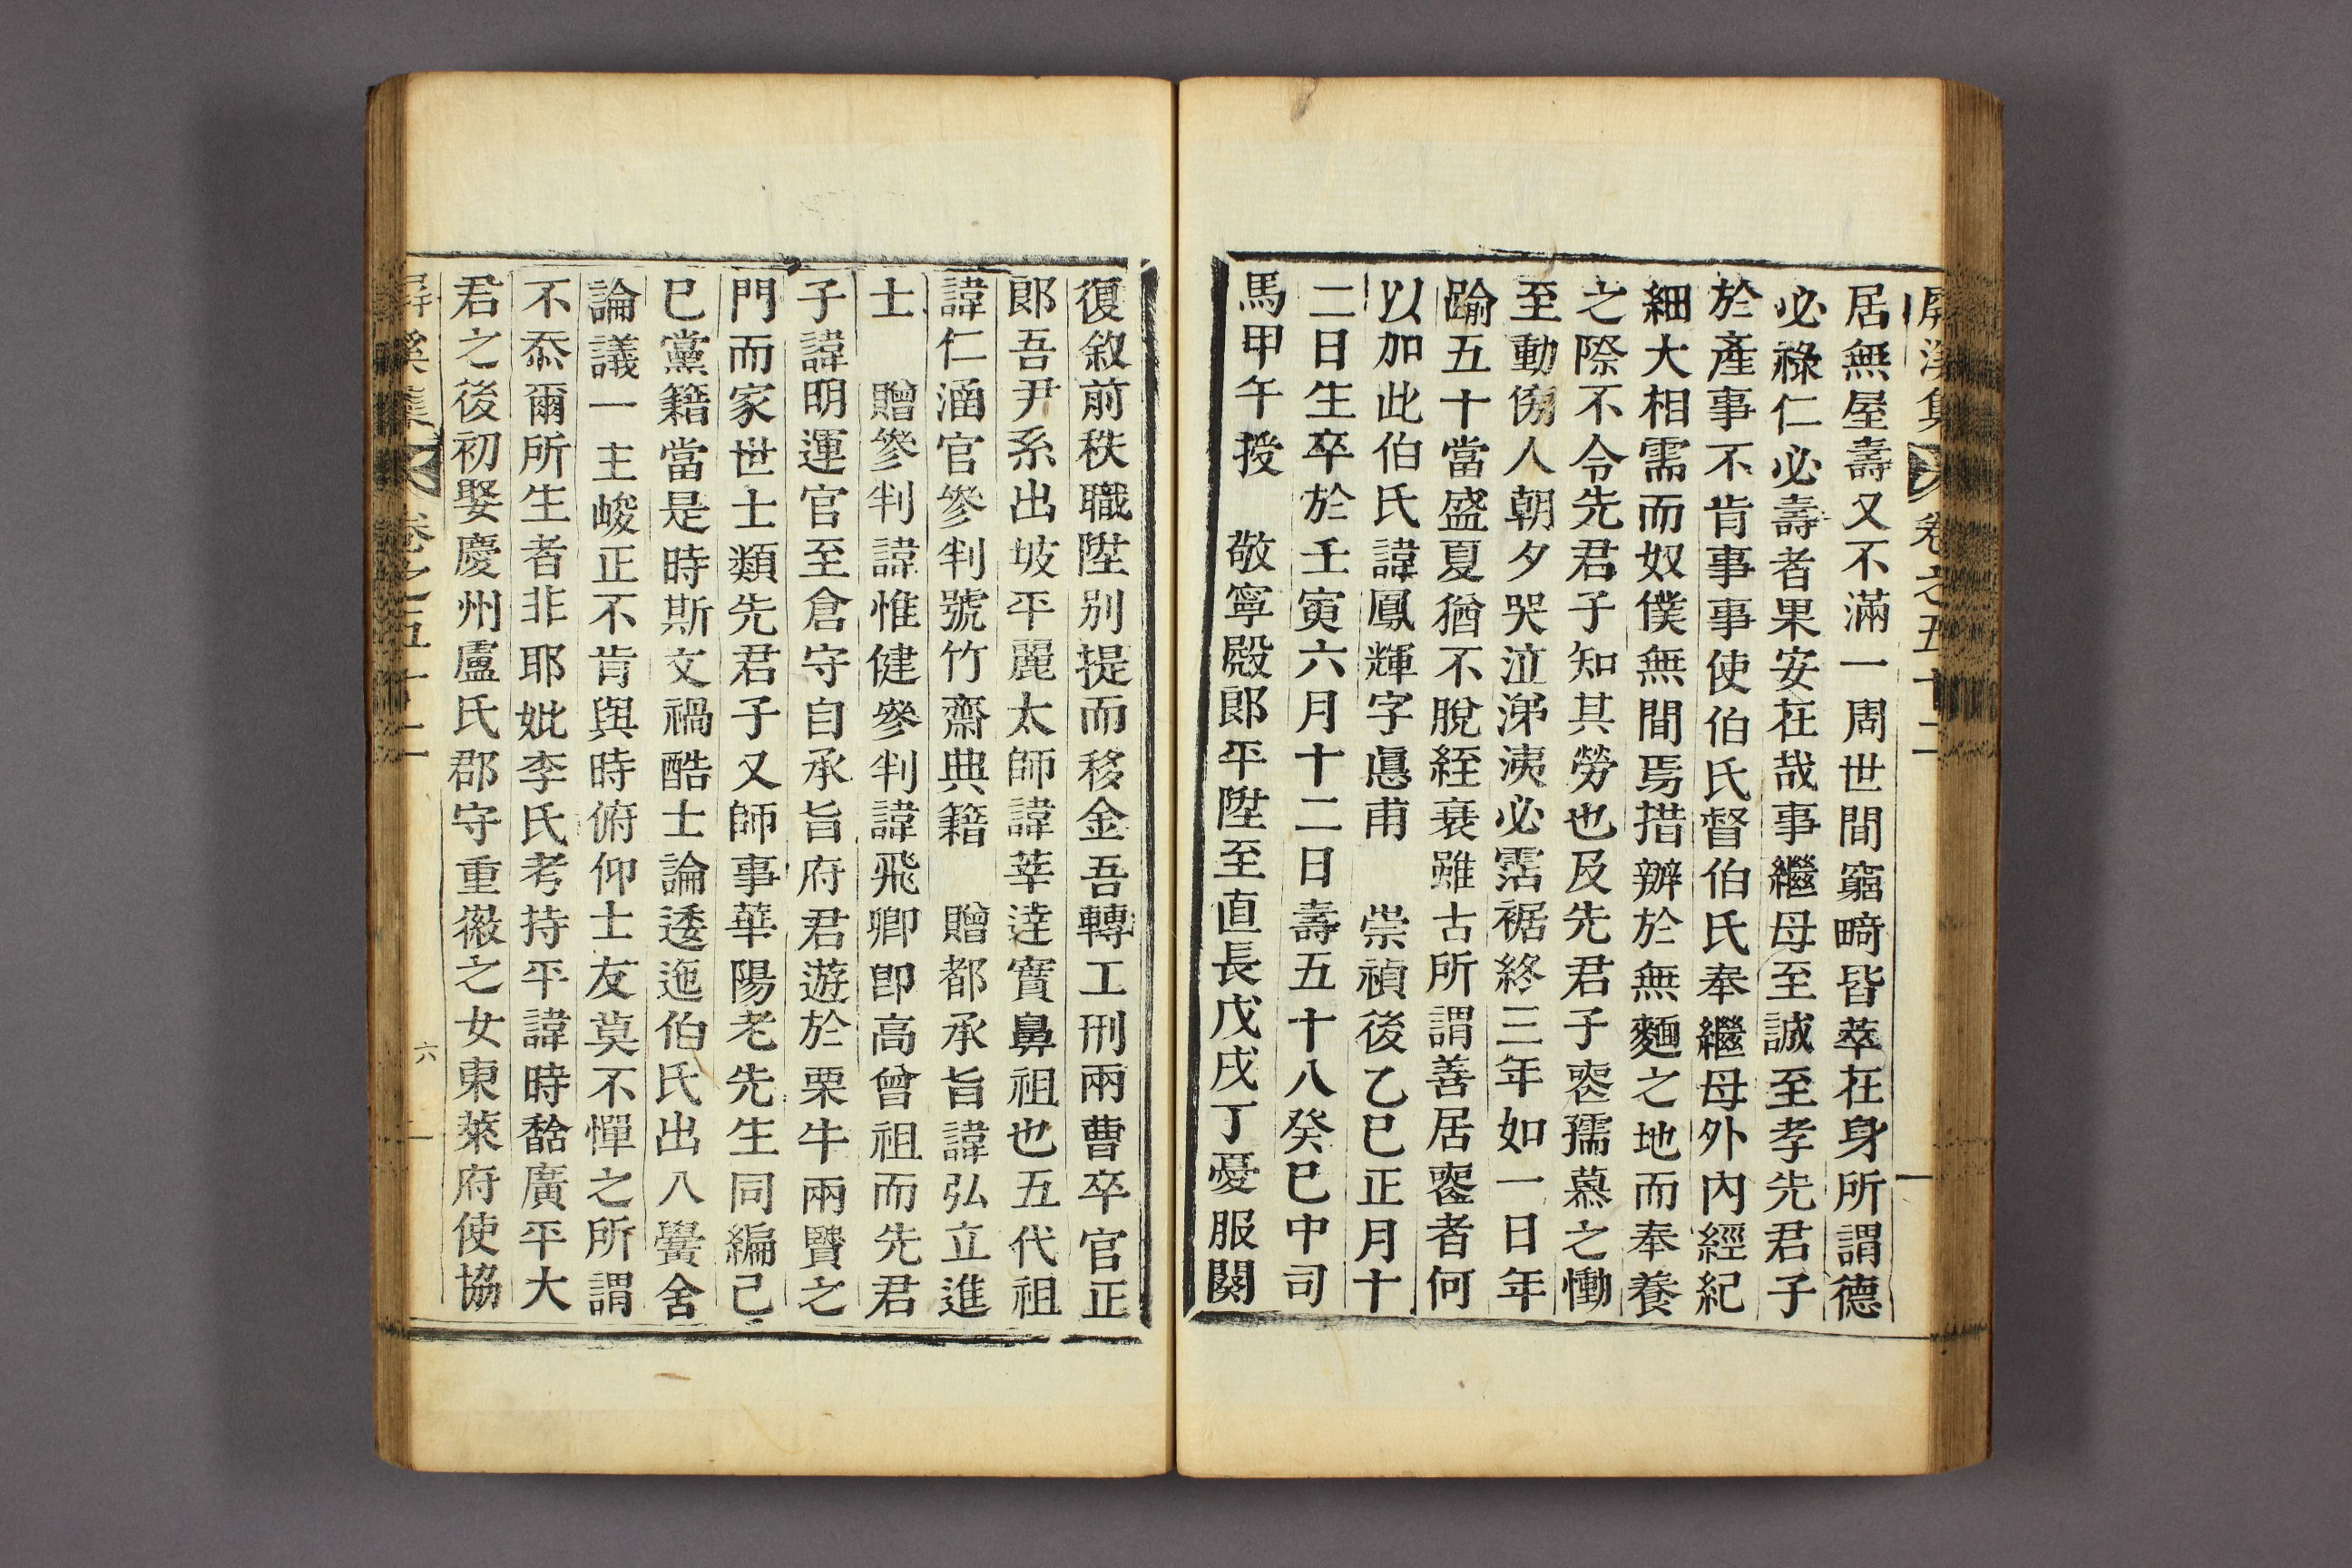 屛溪集 卷之五十二
居無屋壽又不滿一周世間窮畸皆萃在身所謂德
必祿仁必壽者果安在哉事繼母至誠至孝先君子
於產事不肯事事使伯氏督伯氏奉繼母外內經紀
細大相需而奴僕無間焉措辦於無麵之地而奉養
之際不令先君子知其勞也及先君子喪孺慕之慟
至動傍人朝夕哭泣涕洟必霑裾終三年如一日年
踰五十當盛夏猶不脫絰衰雖古所謂善居喪者何
以加此伯氏諱鳳輝字㥁甫 崇禎後乙巳正月十
二日生卒於壬寅六月十二日壽五十八癸巳中司
馬甲午授 敬寧殿郞平陞至直長戊戌丁憂服闋
復敘前秩職陞別提而移金吾轉工刑兩曹卒官正
郞吾尹系出坡平麗太師諱莘達實鼻祖也五代祖
諱仁涵官參判號竹齋典籍 贈都承旨諱弘立進
士 贈參判諱惟健參判諱飛卿卽高曾祖而先君
子諱明運官至倉守自承旨府君遊於栗牛兩賢之
門而家世士類先君子又師事華陽老先生同編己
巳黨籍當是時斯文禍酷士論逶迤伯氏出入黌舍
論議一主峻正不肯與時俯仰士友莫不憚之所謂
不忝爾所生者非耶妣李氏考持平諱時馠廣平大
君之後初娶慶州盧氏郡守重徽之女東萊府使協
屛溪集 卷之五十二 六